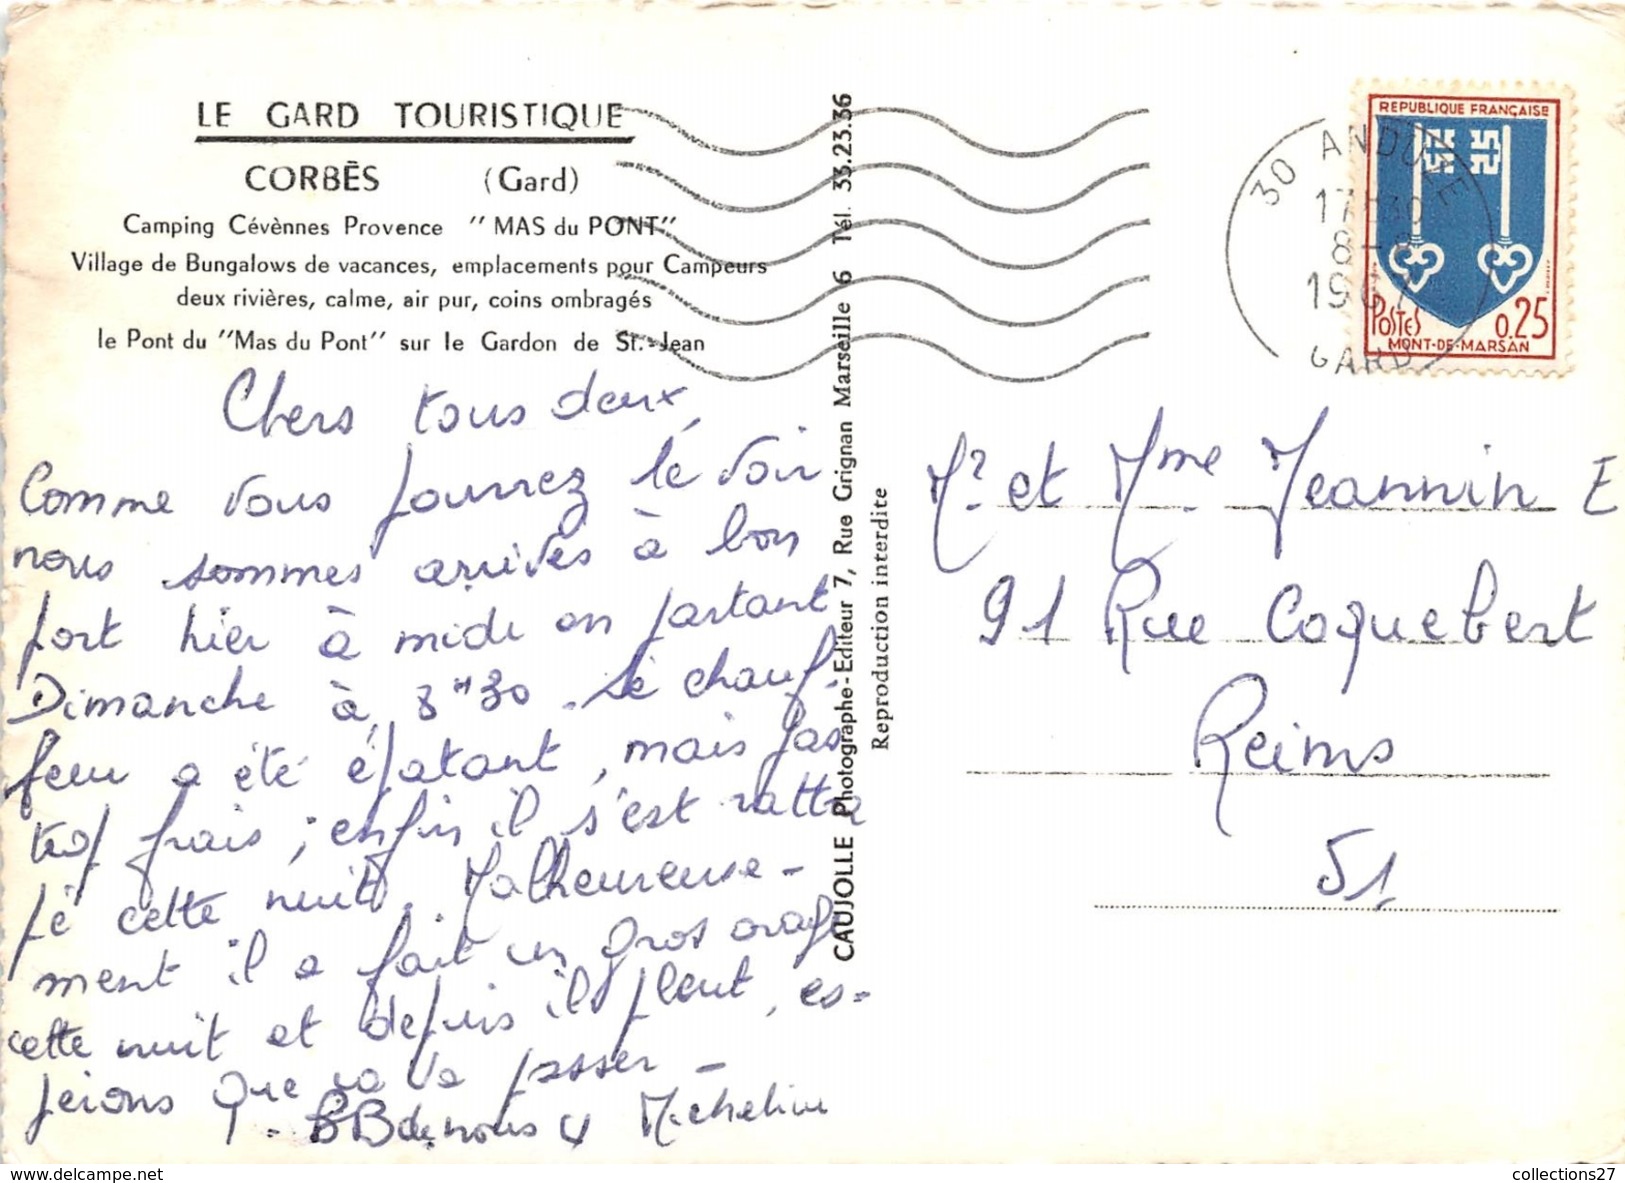 LE GARD TOURISTIQUE
CORBÈS (Gard)
Camping Cévènnes Provence "MAS du PONT"
Village de Bungalows de vacances, emplacements pour Campeurs
deux rivières, calme, air pur, coins ombragés
le Pont du "Mas du Pont" sur le Gardon de St.-Jean
Chers tous deux,
Comme vous pourrez le voir
nous sommes arrivés à bon
port hier à midi en partant
Dimanche à 8h30. Le chauf-
feur a été épatant, mais pas
trop frais ; enfin il s'est rattra
pé cette nuit. Malheureuse-
ment il a fait un gros orage
cette nuit et depuis il pleut, es-
perons que ça va passer -
BB de nous 4 Micheline
CAUJOLLE Photographe-Editeur 7, Rue Grignan Marseille 6 Tél. 33.23.36
Reproduction interdite
30 ANDUZE
17H30
8-8
1967
GARD
REPUBLIQUE FRANÇAISE
POSTES 0.25
MONT-DE-MARSAN
Mr et Mme Jeannin E
91 Rue Coquebert
Reims
51
collections27